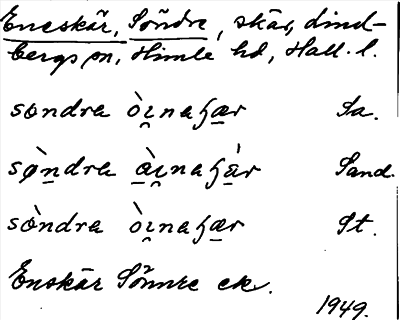 Eneskär, Söndre, skär, Lind-
bergs sn, Himle hd, Hall. l.
søndra òı̯naʃær Sa.
sø̀ndra òı̯naʃàr Sand.
sø̀ndra òı̯naʃær St.
Enskär Sönnre ek.
1949.